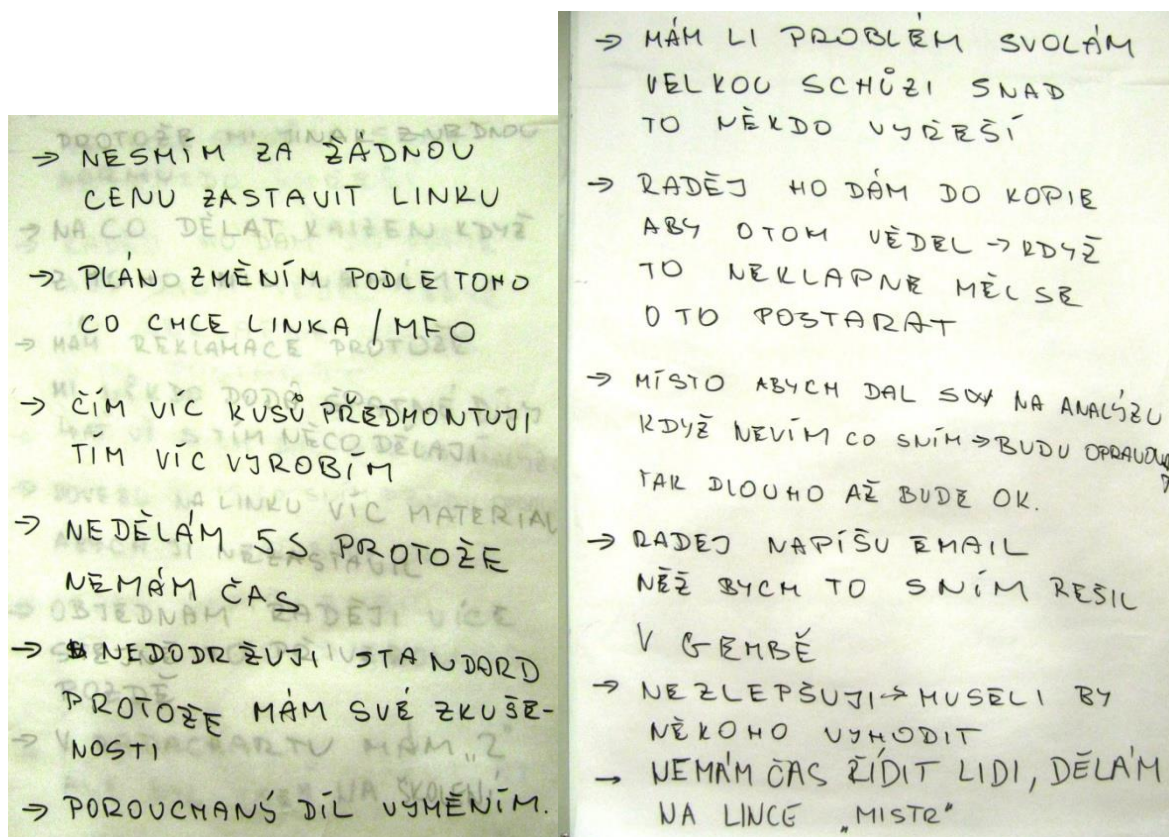 → NESMÍM ZA ŽÁDNOU
CENU ZASTAVIT LINKU
→ NA CO DĚLAT KAIZEN KDYŽ
→ PLÁN ZMĚNÍM PODLE TOHO
CO CHCE LINKA / MFO
→ MÁM REKLAMACE PROTOŽE
→ ČÍM VÍC KUSŮ PŘEDMONTUJI
TÍM VÍC VYROBÍM
NA LINKU VÍC MATERIAL
→ NEDĚLÁM 5S PROTOŽE
NEMÁM ČAS
→ OBJEDNÁM RADĚJI VÍCE
→ NEDODRŽUJI STANDARD
PROTOŽE MÁM SVÉ ZKUŠE-
NOSTI
→ POROUCHANÝ DÍL VYMĚNÍM.
→ MÁM LI PROBLÉM SVOLÁM
VELKOU SCHŮZI SNAD
TO NĚKDO VYŘEŠÍ
→ RADĚJ HO DÁM DO KOPIE
ABY OTOM VĚDEL → KDYŽ
TO NEKLAPNE MĚL SE
O TO POSTARAT
→ MÍSTO ABYCH DAL NA ANALÝZU
KDYŽ NEVÍM CO SNÍM → BUDU
TAK DLOUHO AŽ BUDE OK.
→ RADEJ NAPÍŠU EMAIL
NĚŽ BYCH TO SNÍM REŠIL
V GEMBĚ
→ NEZLEPŠUJI → MUSELI BY
NĚKOHO VYHODIT
→ NEMÁM ČAS ŘÍDIT LIDI, DĚLÁM
NA LINCE „MISTR"